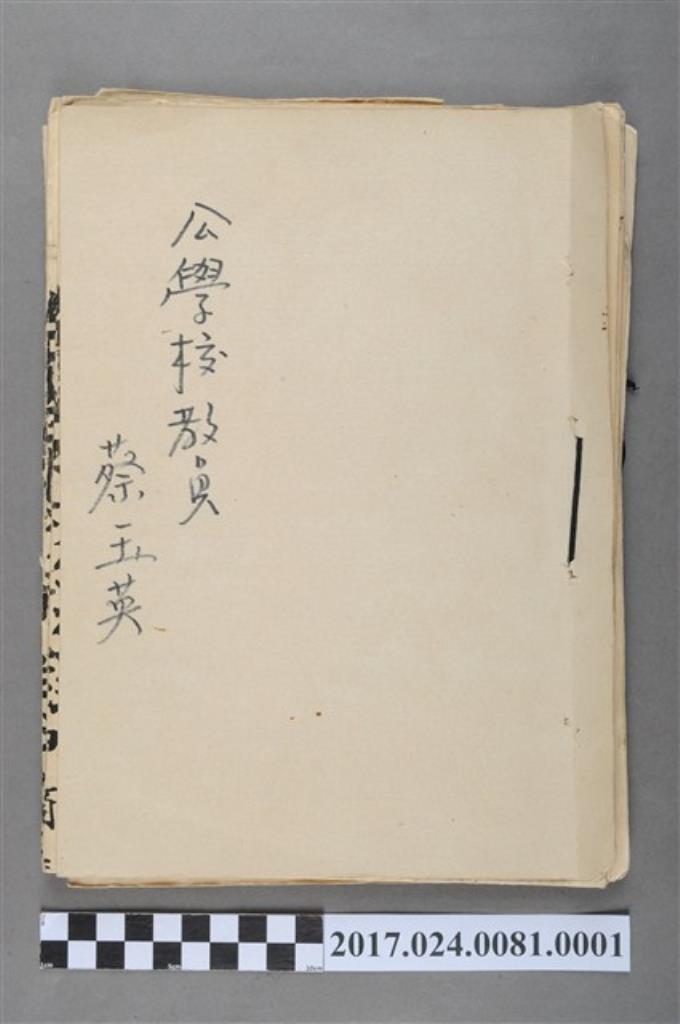 公學校教員
蔡玉英
2017.024.0081.0001